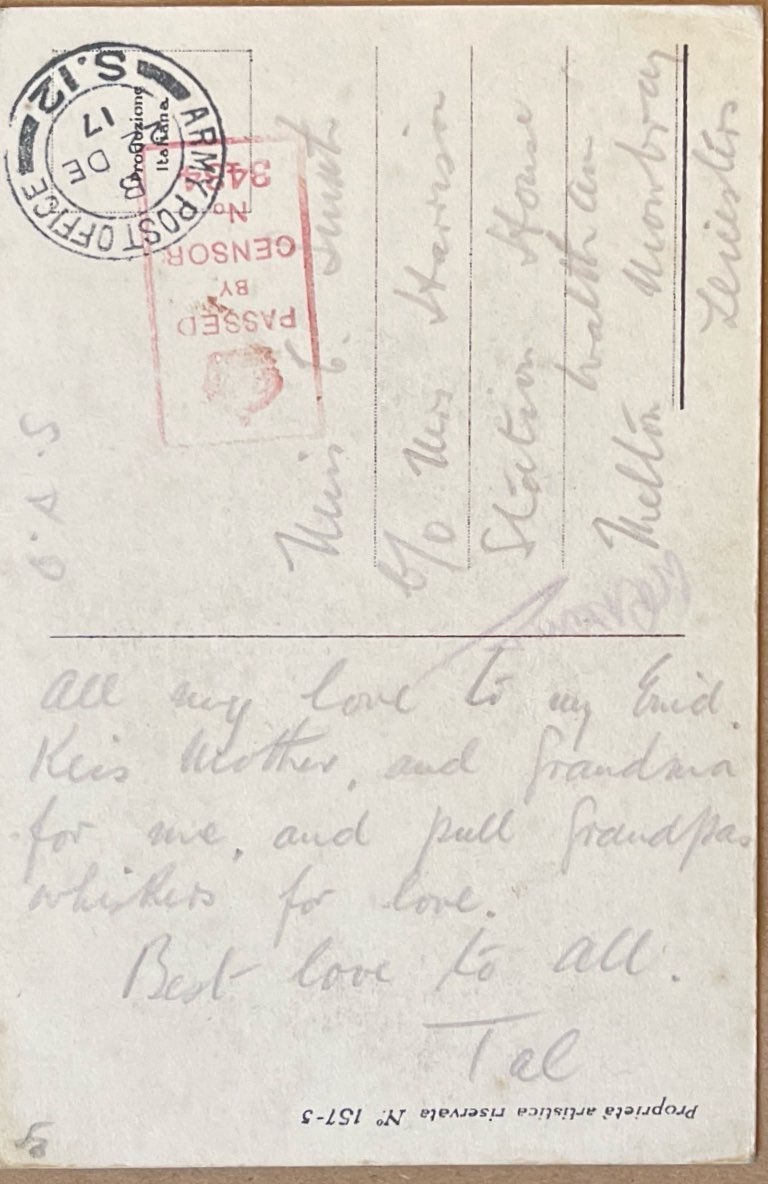 ARMY POST OFFICE
S.12
DE
17
Produzione
Italiana
PASSED
BY
CENSOR
No
O.A.S
Miss E.
c/o Mrs Harrison
Station House
Waltham
Melton Mowbray
Leicesters
All my love to my Enid.
Kiss Mother, and Grandma
for me, and pull Grandpas
whiskers for love.
Best love to all.
Tal
Proprietà artistica riservata Nº. 157-5